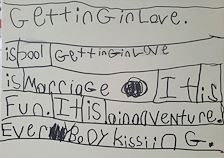 GettinGinLove.
is bool GettinGinLove
is Marriage It is
Fun. It is a inadventure.
Everybody kissiinG.